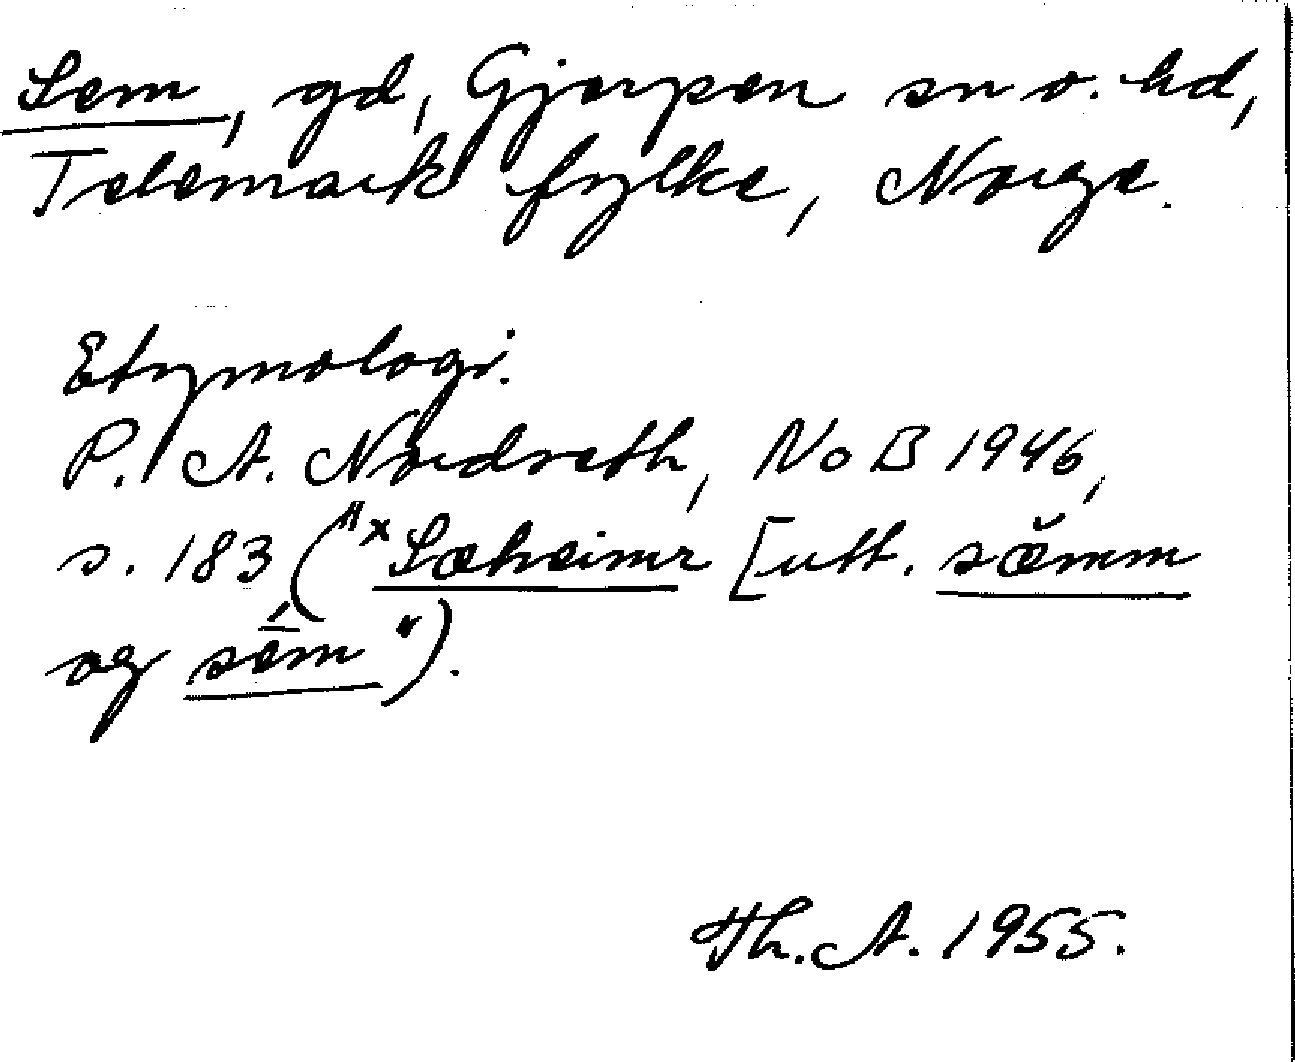 Sem, gd, Gjerpen sn o. hd,
Telemark fylke, Norge.
Etymologi.
P. A. Nordseth, NoB 1946,
s. 183 ("ˣSæheimr [utt. sæ̆mm
og sē´m").
Th. A. 1955.